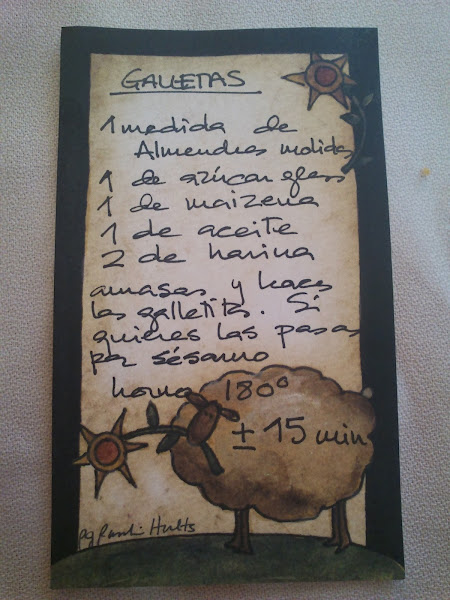 GALLETAS
1 medida de
Almendras molidas
1 de azúcar glass
1 de maizena
1 de aceite
2 de harina
amasas y haces
las galletitas. Si
quieres las pasas
por sésamo
horno 180º
± 15 min
Hults